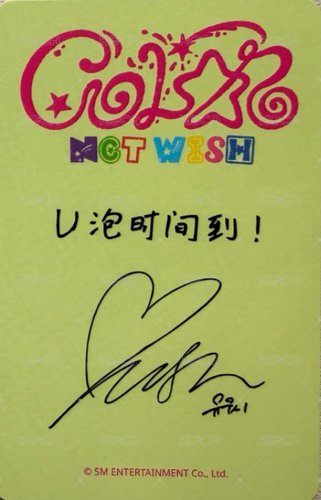 COLOR
NCT WISH
U 泡时间到！
유우시
© SM ENTERTAINMENT Co., Ltd.